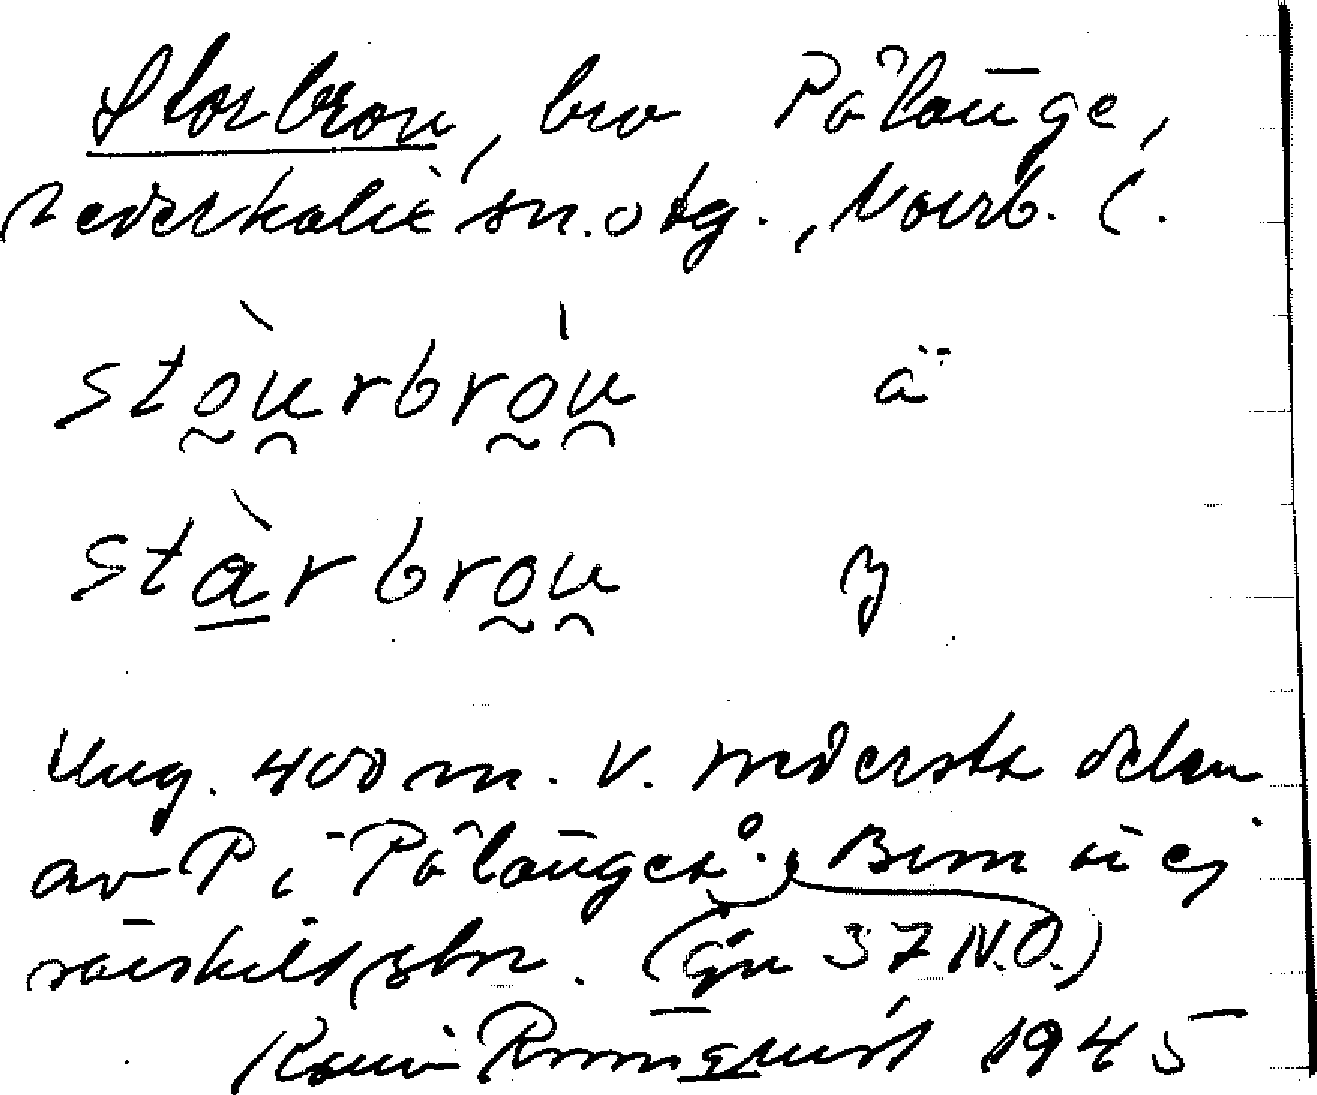 Storbron, bro Pålänge,
Nederkalix sn. o tg., Norrb. l.
stòu̯rbròu̯ ä
stàrbrou̯ y
Ung. 400 m. V. nedersta delen
av P i Pålängeå. Bron är ej
särskilt stor. (Gk 37 N.O.)
Karin Ronnquist 1945